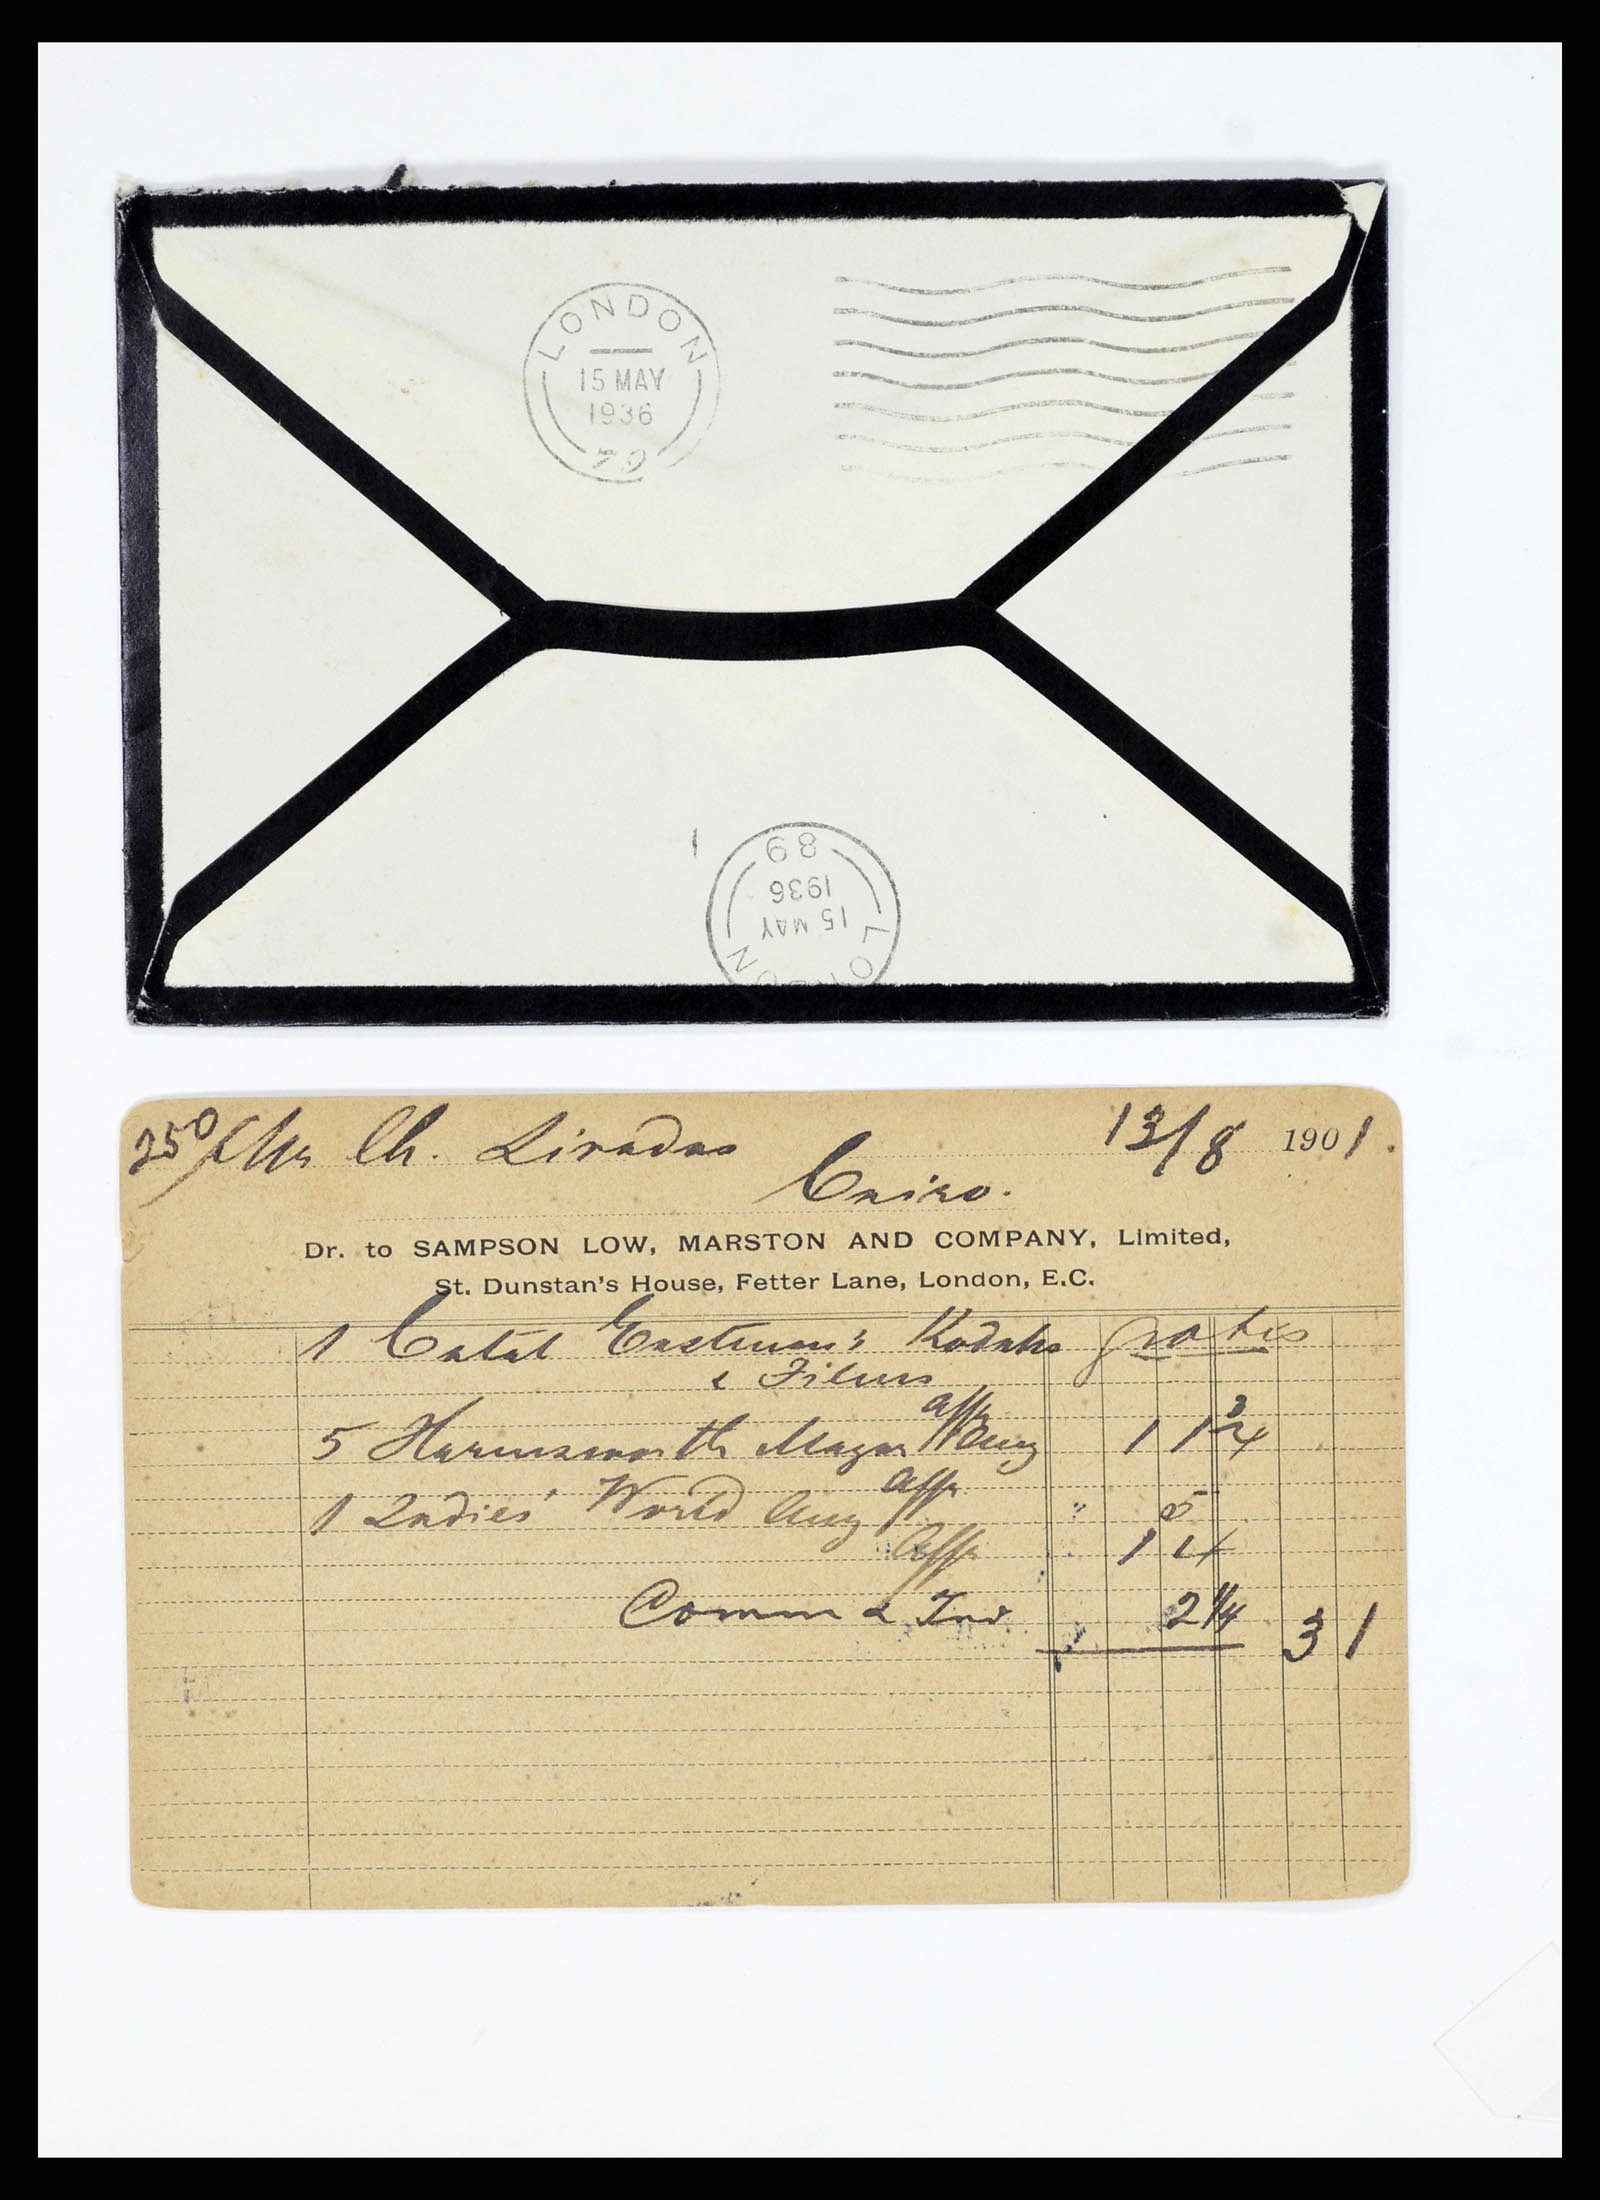 LONDON
15 MAY
1936
79
89
1936
15 MAY
LONDON
250 Mr Ch. Livadas 13/8 1901.
Cairo.
Dr. to SAMPSON LOW, MARSTON AND COMPANY, Limited,
St. Dunstan's House, Fetter Lane, London, E.C.
1 Catal Eastman's Kodaks gratis
& Films
5 Harmsworth Magaz Aug 1 1 3/4
1 Ladies' World Aug " 5
1 4
Comm & Ins 2 1/4 3 1